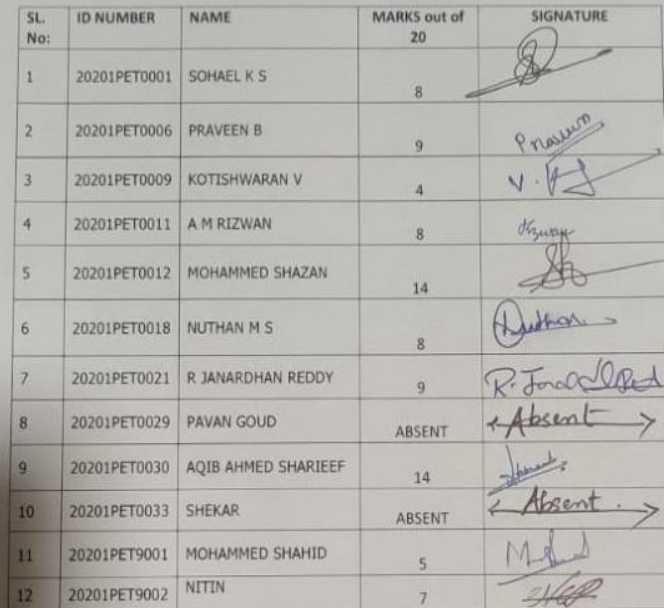 SL. No: ID NUMBER NAME MARKS out of 20 SIGNATURE
1 20201PET0001 SOHAEL K S 8
2 20201PET0006 PRAVEEN B 9 Praveen
3 20201PET0009 KOTISHWARAN V 4
4 20201PET0011 A M RIZWAN 8
5 20201PET0012 MOHAMMED SHAZAN 14
6 20201PET0018 NUTHAN M S 8 Nuthan
7 20201PET0021 R JANARDHAN REDDY 9
8 20201PET0029 PAVAN GOUD ABSENT Absent
9 20201PET0030 AQIB AHMED SHARIEEF 14
10 20201PET0033 SHEKAR ABSENT Absent
11 20201PET9001 MOHAMMED SHAHID 5
12 20201PET9002 NITIN 7